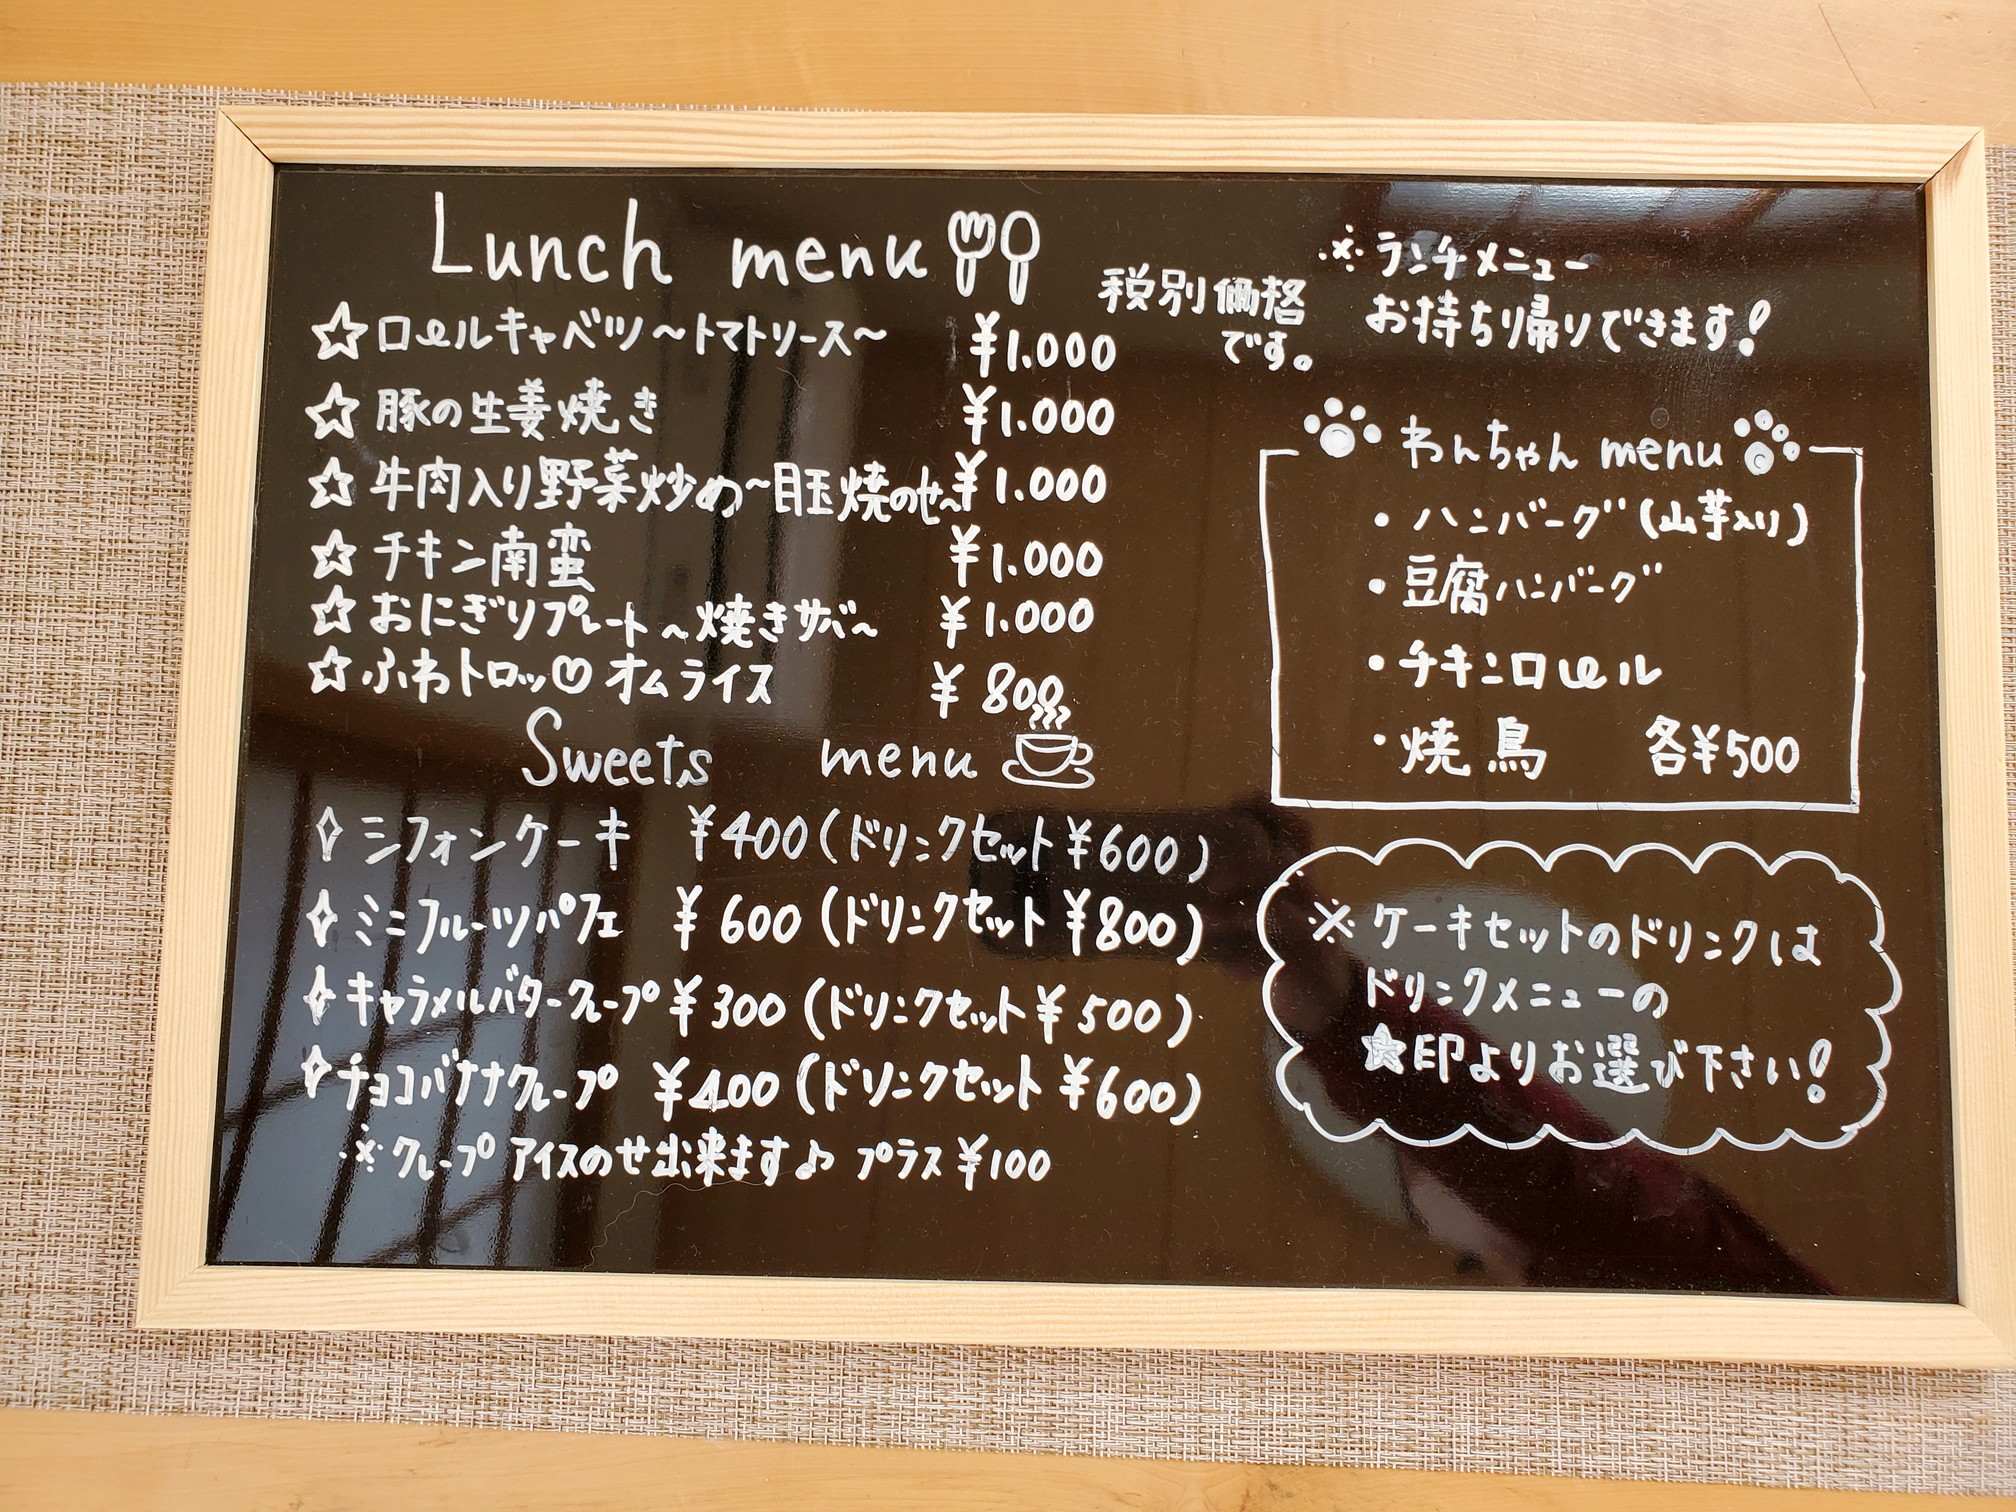 Lunch menu
税別価格
です。
☆ロールキャベツ～トマトソース～ ¥1.000
☆豚の生姜焼き ¥1.000
☆牛肉入り野菜炒め～目玉焼のせ～ ¥1.000
☆チキン南蛮 ¥1.000
☆おにぎりプレート～焼きサバ～ ¥1.000
☆ふわトロッ♡オムライス ¥800
Sweets menu
✧シフォンケーキ ¥400(ドリンクセット¥600)
✧ミニフルーツパフェ ¥600(ドリンクセット¥800)
✧キャラメルバタークレープ ¥300(ドリンクセット¥500)
✧チョコバナナクレープ ¥400(ドリンクセット¥600)
※クレープアイスのせ出来ます♪プラス¥100
※ランチメニュー
お持ち帰りできます!
わんちゃん menu
・ハンバーグ(山芋入り)
・豆腐ハンバーグ
・チキンロール
・焼鳥 各¥500
※ケーキセットのドリンクは
ドリンクメニューの
★印よりお選び下さい!